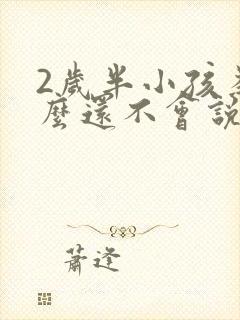 2歲半小孩
麼還不會說
蕭逢